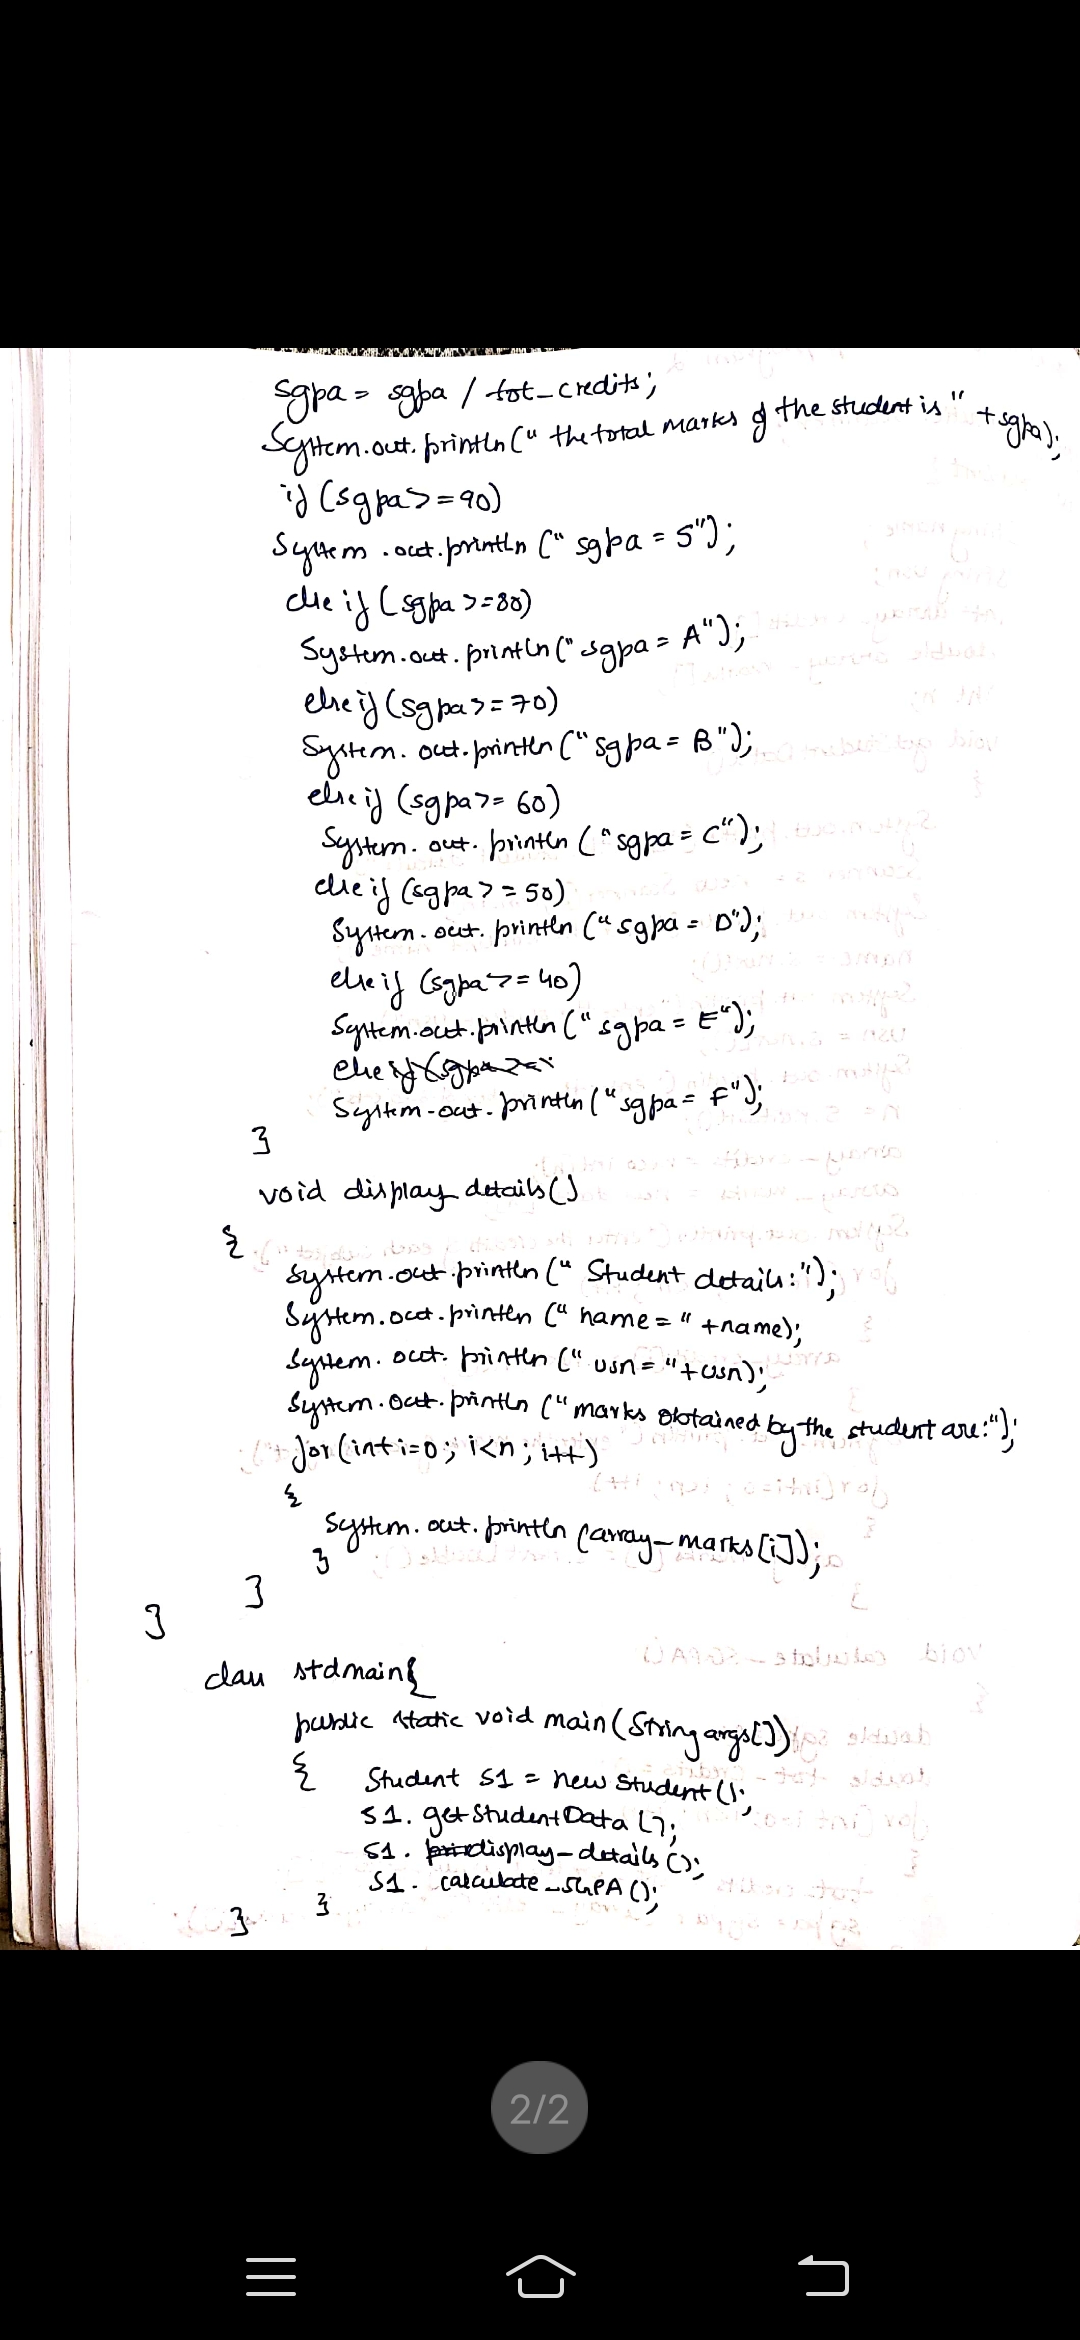 sgpa = sgpa / tot_credits;
System.out.println(" the total marks of the student is " +sgpa);
if (sgpa>=90)
System.out.println (" sgpa = S");
else if (sgpa >=80)
System.out.println(" sgpa = A");
else if (sgpa>=70)
System.out.println ("sgpa = B");
else if (sgpa>= 60)
System.out.println ("sgpa = C");
else if (sgpa>=50)
System.out.println ("sgpa = D");
else if (sgpa>=40)
System.out.println (" sgpa = E");
else if (sgpa>=
System.out.println ("sgpa = F");
}
void display_details()
{
System.out.println (" Student details:");
System.out.println (" name = " +name);
System.out.println (" usn = "+usn);
System.out.println ("marks obtained by the student are:");
for(int i=0; i<n; i++)
{
System.out.println (array_marks[i]);
}
}
}
class stdmain{
public static void main(String args[])
{ Student S1 = new Student ();
S1. getStudentData ();
S1. display_details ();
S1. calculate_SGPA ();
}
}
2/2